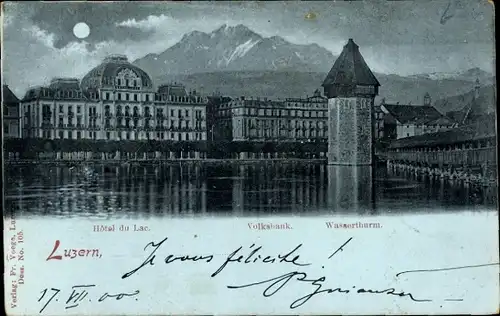 Hôtel du Lac.
Volksbank.
Wasserthurm.
Luzern,
Je vous félicite!
17. VII. 00
Verlag: Fr. Voege, Lu
Dess. No. 105.